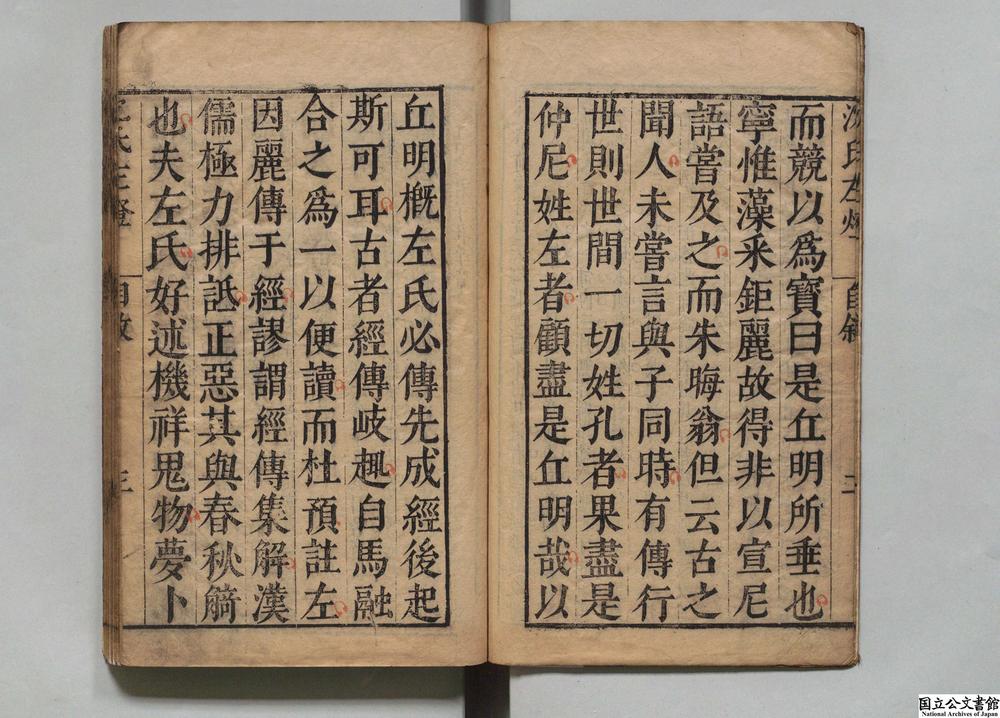 而競以爲寶曰是丘明所垂也
寧惟藻采鉅麗故得非以宣尼
語嘗及之而朱晦翁但云古之
聞人未嘗言與子同時有傳行
世則世間一切姓孔者果盡是
仲尼姓左者顧盡是丘明哉以
丘明槪左氏必傳先成經後起
斯可耳古者經傳岐趣自馬融
合之爲一以便讀而杜預註左
因麗傳于經謬謂經傳集解漢
儒極力排詆正惡其與春秋觭
也夫左氏好述機祥鬼物夢卜
三
国立公文書館
National Archives of Japan